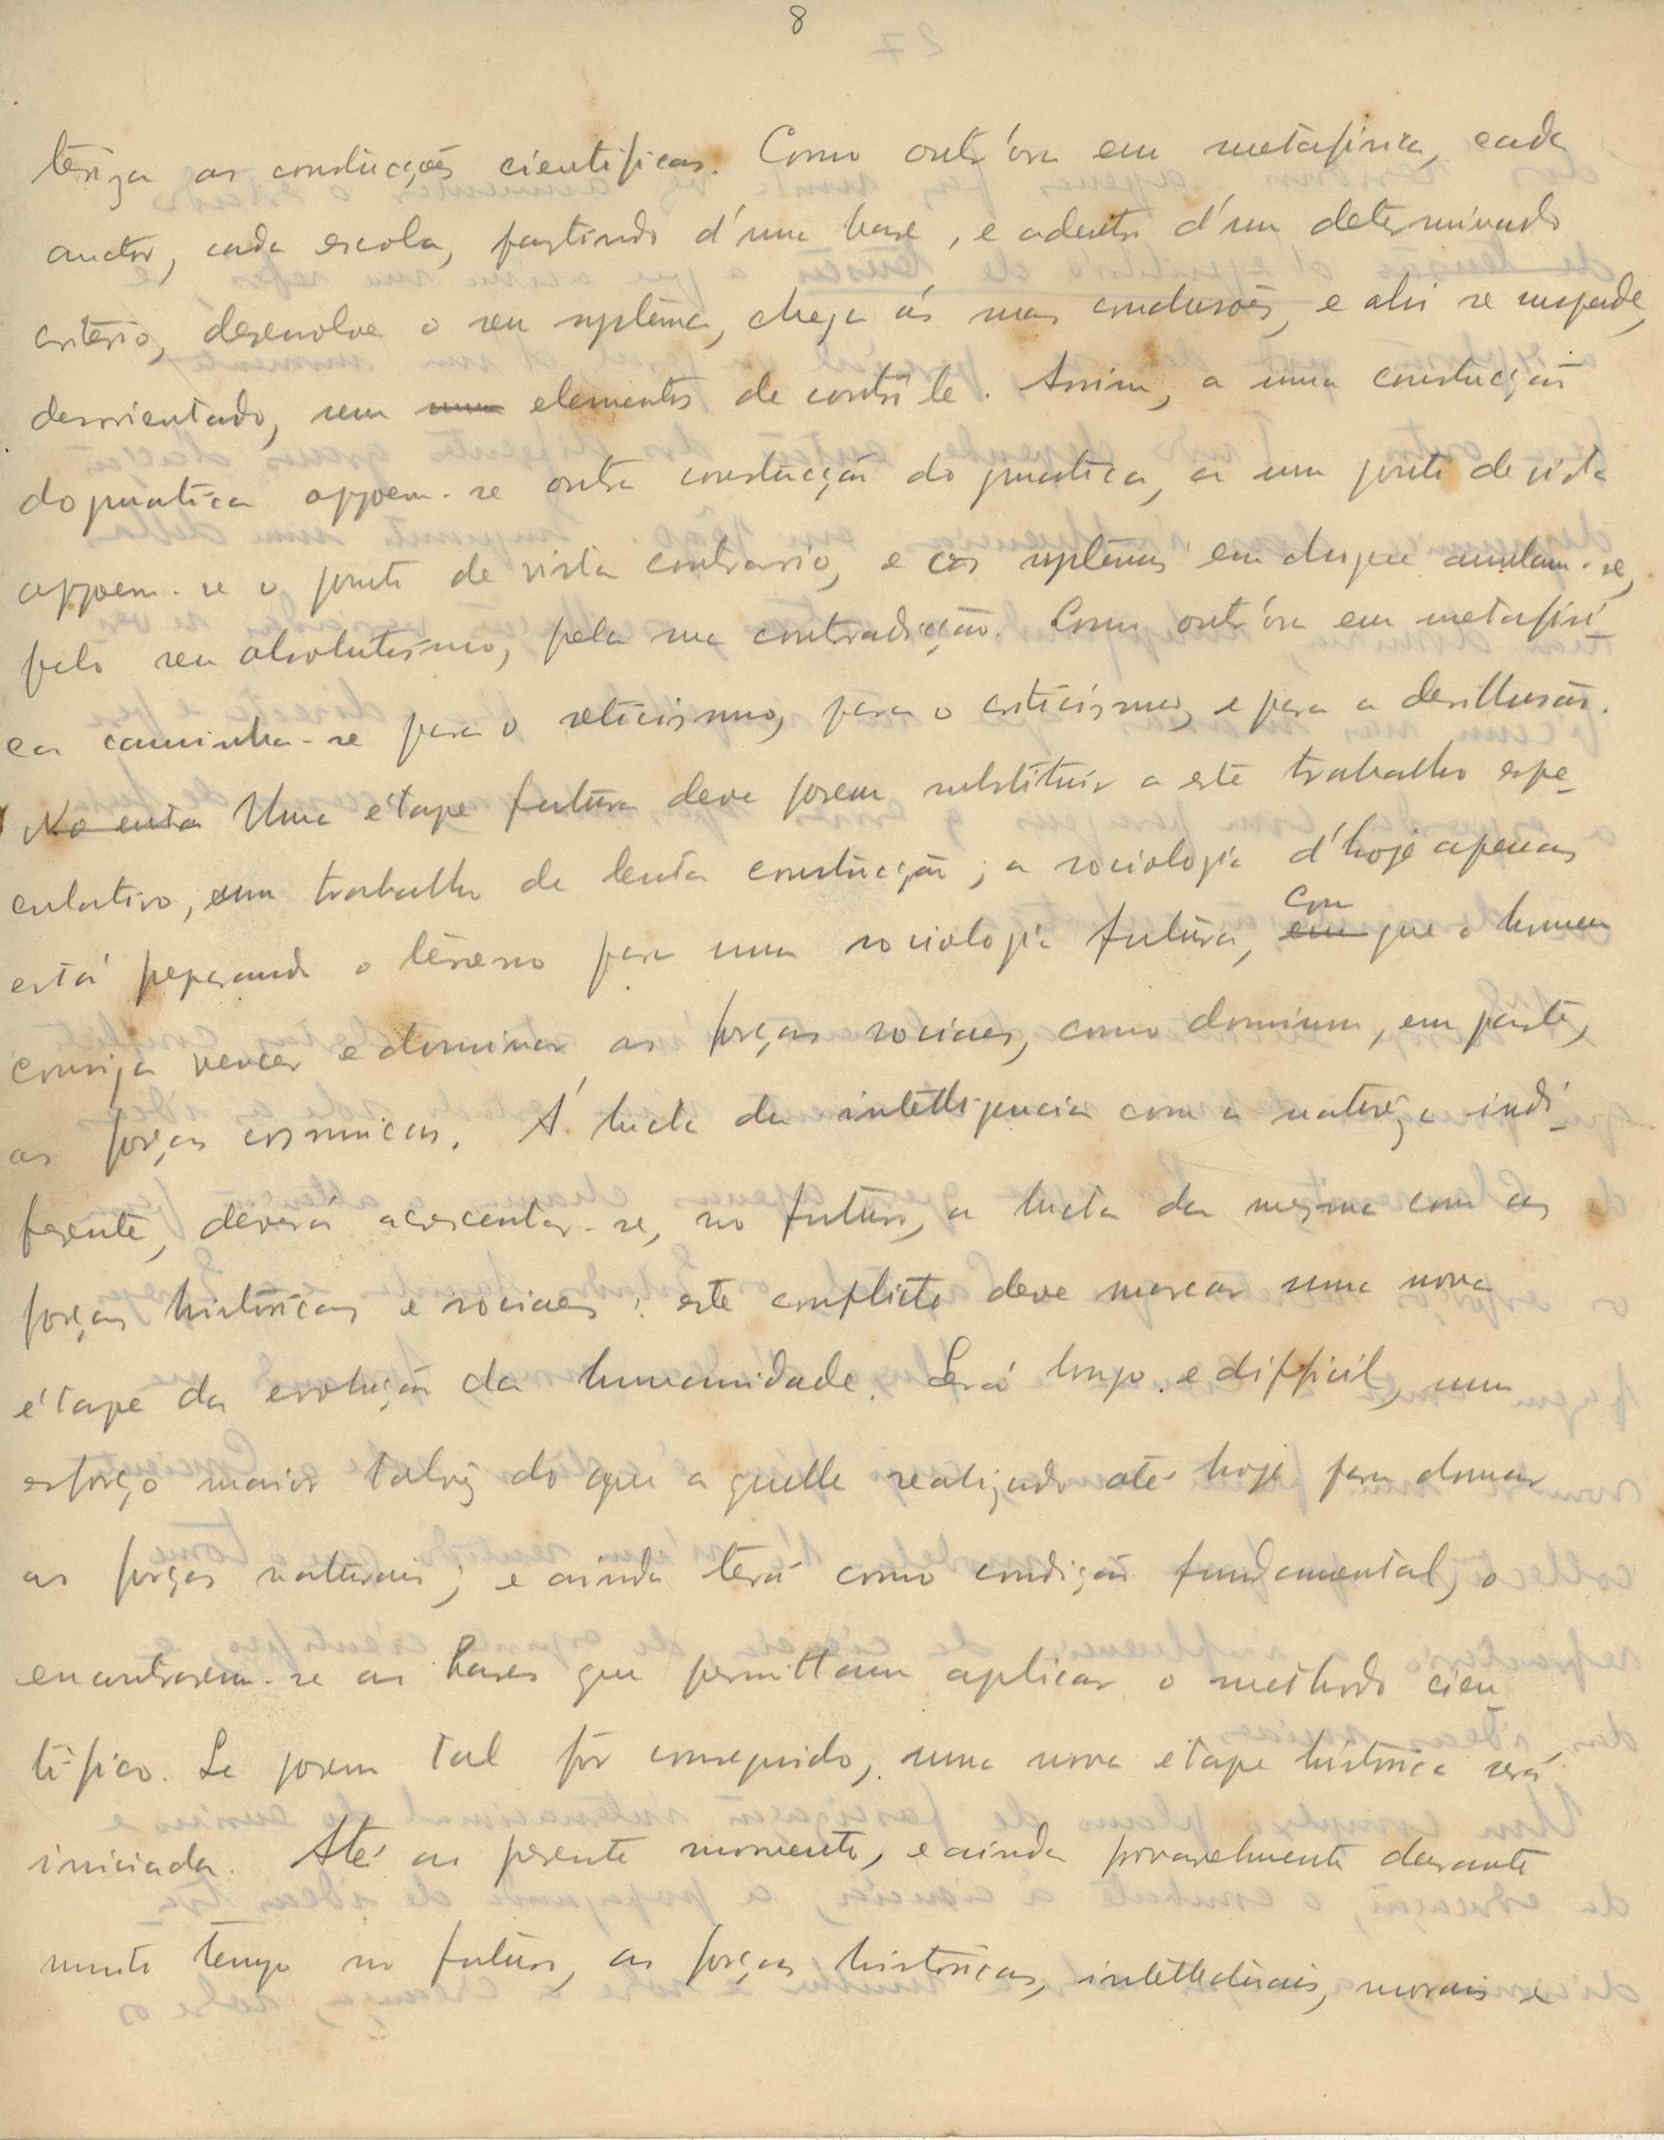 8
teriza as construcções cientificas. Como outr'ora em metafisica, cada
auctor, cada escola, partindo d'uma base, e adentro d'um determinado
criterio, desenvolve o seu systema, chega ás suas conclusões, e ahi se suspende,
desorientado, sem elementos de contrôle. Assim, a uma construcção
dogmatica oppoem-se outra construcção dogmatica, a um ponto de vista
oppoem-se o ponto de vista contrario, e os systemas em choque annulam-se,
pelo seu absolutismo, pela sua contradicção. Como outr'ora em metafisi-
ca caminha-se para o sticismo, para o criticismo, e para a desillusão.
No enta Uma étape futura deve porem substituir a este trabalho espe-
culativo, um trabalho de lenta construcção; a sociologia d'hoje apenas
está preparando o terreno para uma sociologia futura, em com que o homem
consiga vencer e dominar as forças sociaes, como dominou, em parte,
as forças cosmicas. Á lucta da intelligencia com a natureza indi-
ferente, deverá acrescentar-se, no futuro, a lucta da mesma com as
forças historicas e sociaes; este conflicto deve marcar uma nova
étape da evolução da humanidade. Será longo e difficil, um
esforço maior talvez do que aquelle realizado até hoje para domar
as forças naturais; e ainda terá como condição fundamental, o
encontrarem-se as bases que permittam aplicar o methodo cien-
tifico. Se porem tal fôr conseguido, uma nova etape historica será
iniciada. Até ao presente momento, e ainda provavelmente durante
muito tempo no futuro, as forças historicas, intellectuais, morais e